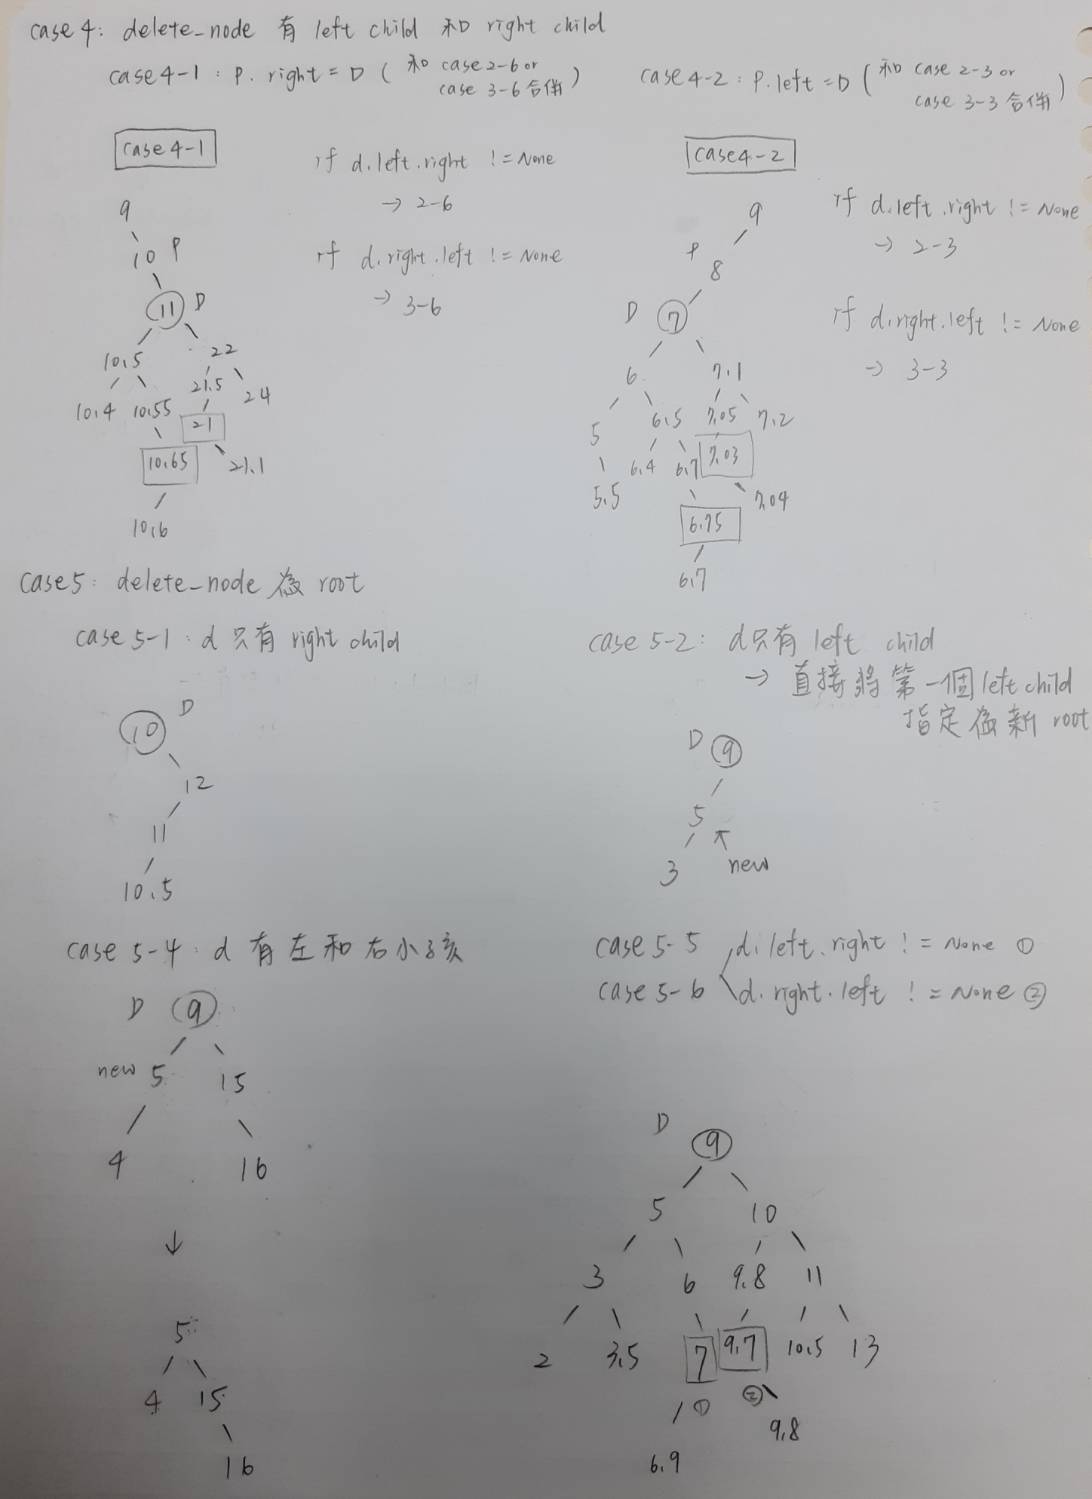 case 4: delete_node 有 left child 和 right child
case 4-1 : P. right = D ( 和 case 2-6 or
case 3-6 合併 )
case 4-2 : P. left = D ( 和 case 2-3 or
case 3-3 合併 )
case 4-1
if d.left.right != None
→ 2-6
if d.right.left != None
→ 3-6
9
10 P
11 D
10.5 22
10.4 10.55 21.5 24
21
10.65 21.1
10.6
case 4-2
if d.left.right != None
→ 2-3
if d.right.left != None
→ 3-3
9
P 8
D 7
6 7.1
5 6.5 7.05 7.2
5.5 6.4 6.7 7.03
6.75 7.04
6.7
case 5: delete_node 為 root
case 5-1 : d 只有 right child
D
10
12
11
10.5
case 5-2: d 只有 left child
→ 直接將第一個 left child
指定為新 root
D 9
5
3 new
case 5-4 : d 有左和右小孩
D 9
new 5 15
4 16
↓
5
4 15
16
case 5-5 d. left. right != None ①
case 5-6 d. right. left != None ②
D
9
5 10
3 6 9.8 11
2 3.5 7 9.7 10.5 13
① ②
6.9 9.8